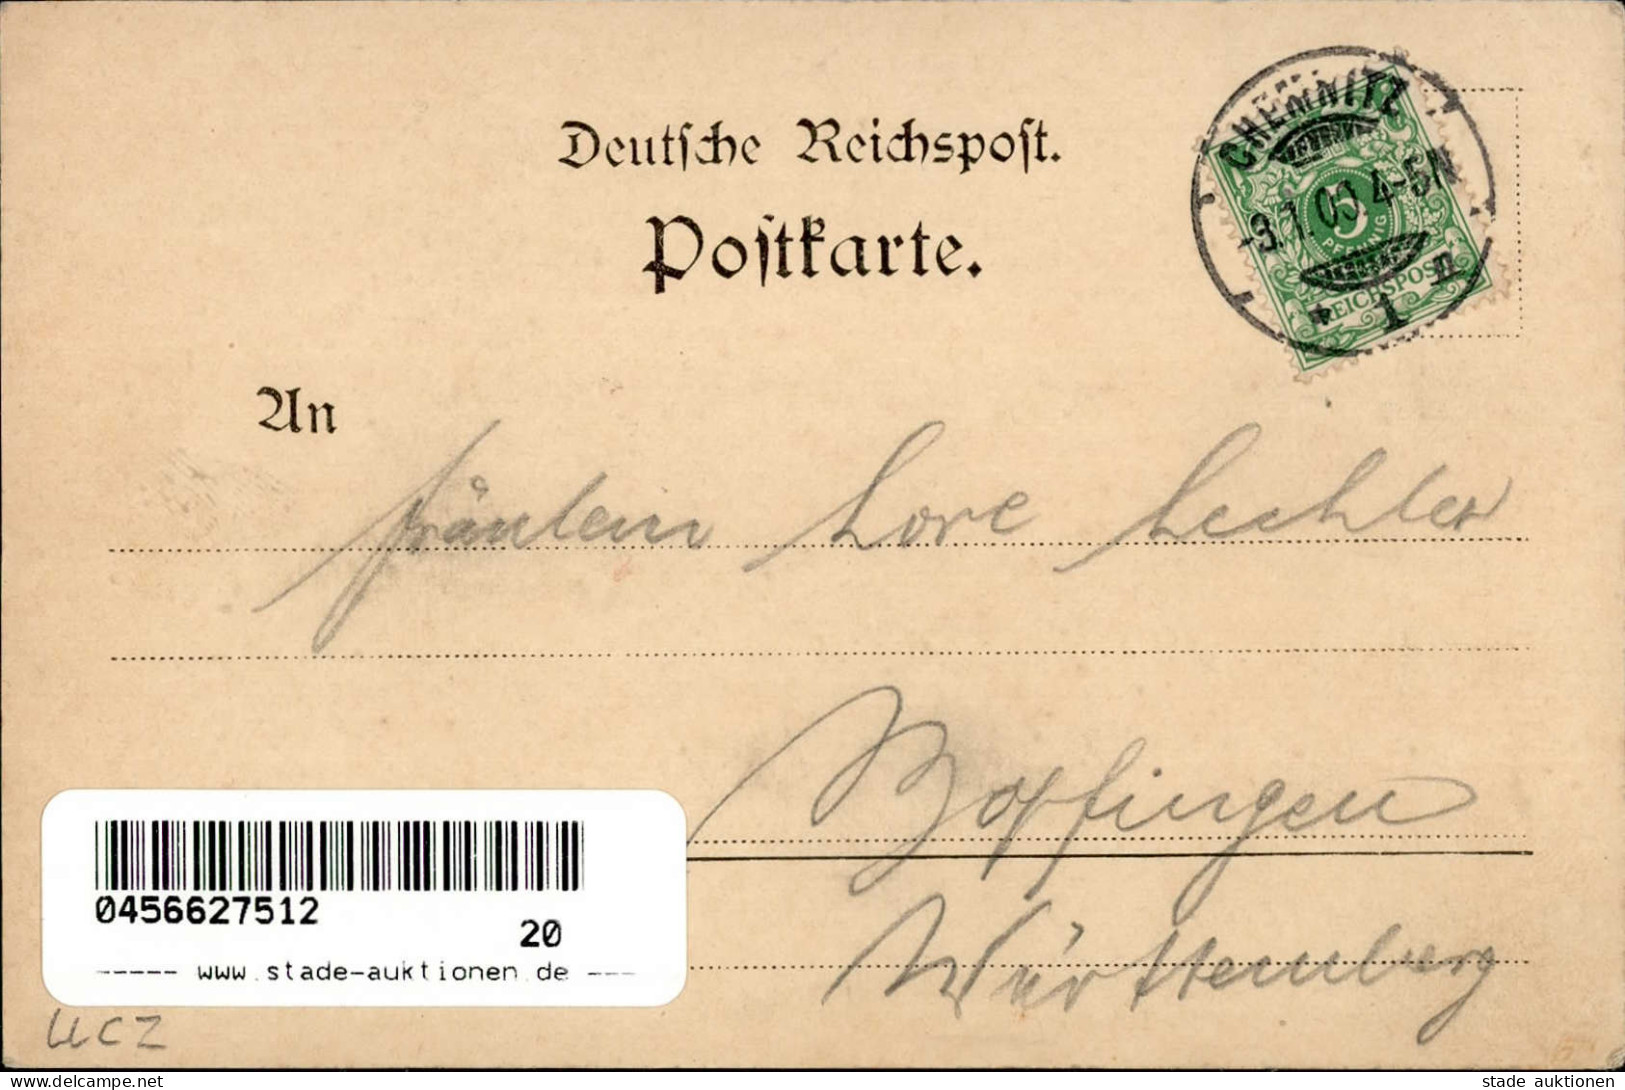 Deutsche Reichspost.
Postkarte.
CHEMNITZ
4-5N
1 n
5
PFENNIG
REICHSPOST
An
Fräulein Lore Lechler
Bopfingen
Württemberg
0456627512
20
----- www.stade-auktionen.de ---
UCZ
stade auktionen